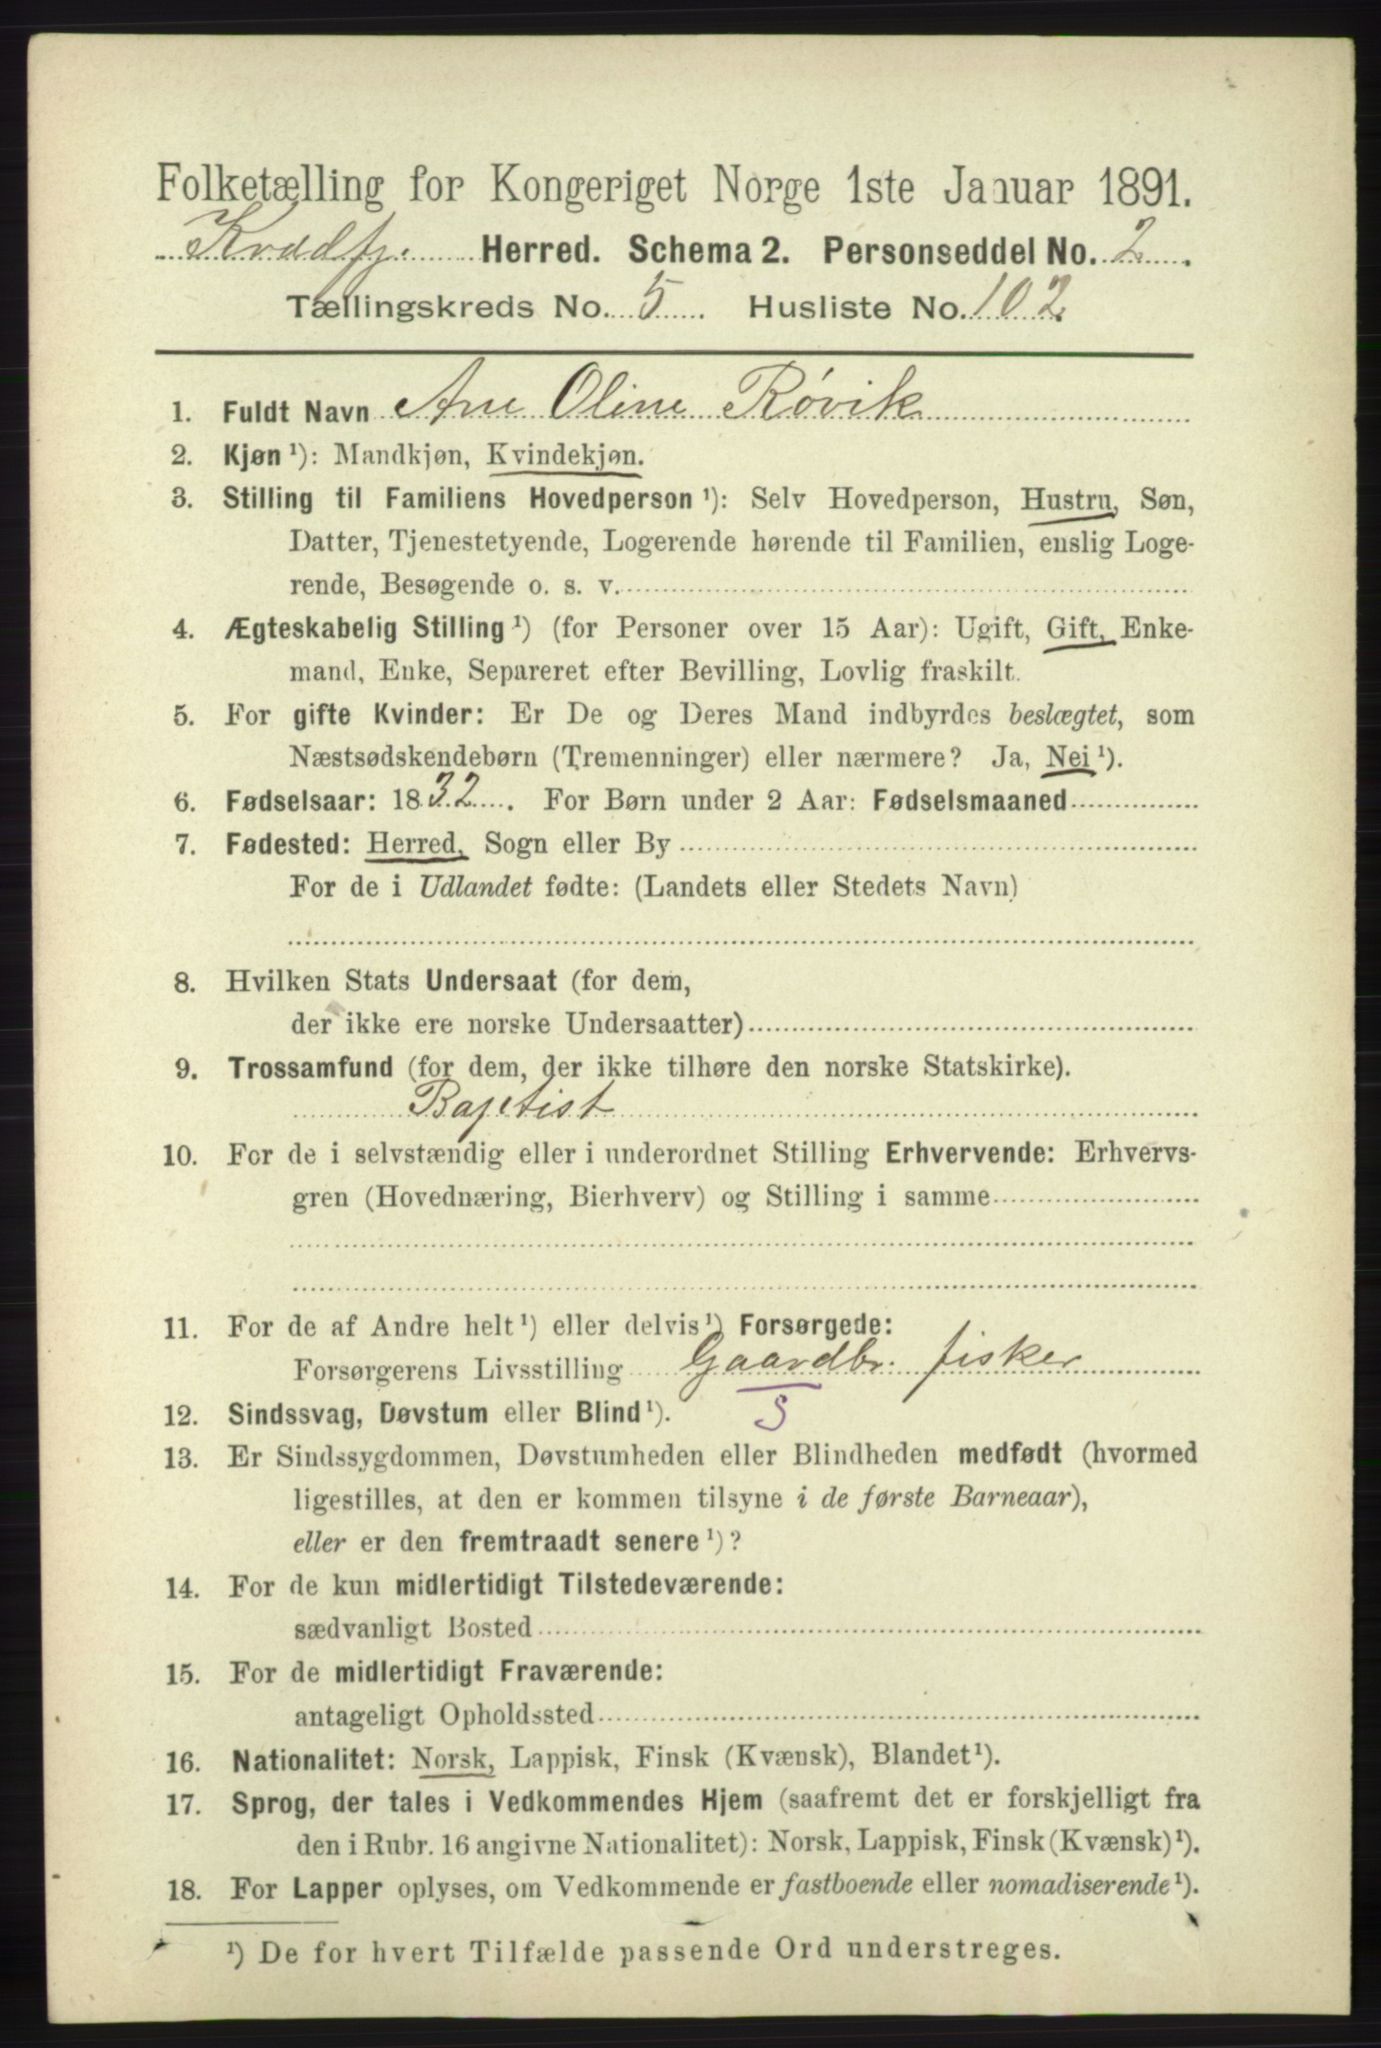 Folketælling for Kongeriget Norge 1ste Januar 1891.
Kvædfj. Herred. Schema 2. Personseddel No. 2.
Tællingskreds No. 5. Husliste No. 102.
1. Fuldt Navn Ane Oline Røvik
2. Kjøn ¹): Mandkjøn, Kvindekjøn.
3. Stilling til Familiens Hovedperson ¹): Selv Hovedperson, Hustru, Søn,
Datter, Tjenestetyende, Logerende hørende til Familien, enslig Loge-
rende, Besøgende o. s. v.
4. Ægteskabelig Stilling ¹) (for Personer over 15 Aar): Ugift, Gift, Enke-
mand, Enke, Separeret efter Bevilling, Lovlig fraskilt.
5. For gifte Kvinder: Er De og Deres Mand indbyrdes beslægtet, som
Næstsødskendebørn (Tremenninger) eller nærmere? Ja, Nei ¹).
6. Fødselsaar: 1832. For Børn under 2 Aar: Fødselsmaaned
7. Fødested: Herred, Sogn eller By
For de i Udlandet fødte: (Landets eller Stedets Navn)
8. Hvilken Stats Undersaat (for dem,
der ikke ere norske Undersaatter)
9. Trossamfund (for dem, der ikke tilhøre den norske Statskirke).
Baptist
10. For de i selvstændig eller i underordnet Stilling Erhvervende: Erhvervs-
gren (Hovednæring, Bierhverv) og Stilling i samme
11. For de af Andre helt ¹) eller delvis ¹) Forsørgede:
Forsørgerens Livsstilling Gaardbr. fisker
12. Sindssvag, Døvstum eller Blind ¹). S
13. Er Sindssygdommen, Døvstumheden eller Blindheden medfødt (hvormed
ligestilles, at den er kommen tilsyne i de første Barneaar),
eller er den fremtraadt senere ¹)?
14. For de kun midlertidigt Tilstedeværende:
sædvanligt Bosted
15. For de midlertidigt Fraværende:
antageligt Opholdssted
16. Nationalitet: Norsk, Lappisk, Finsk (Kvænsk), Blandet ¹).
17. Sprog, der tales i Vedkommendes Hjem (saafremt det er forskjelligt fra
den i Rubr. 16 angivne Nationalitet): Norsk, Lappisk, Finsk (Kvænsk) ¹).
18. For Lapper oplyses, om Vedkommende er fastboende eller nomadiserende ¹).
¹) De for hvert Tilfælde passende Ord understreges.